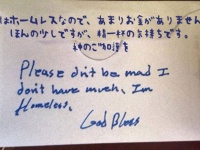 はホームレスなので、あまりお金がありません
ほんの少しですが、精一杯の気持ちです。
神のご加護を
Please don't be mad I
don't have much, I'm
Homeless.
God Bless